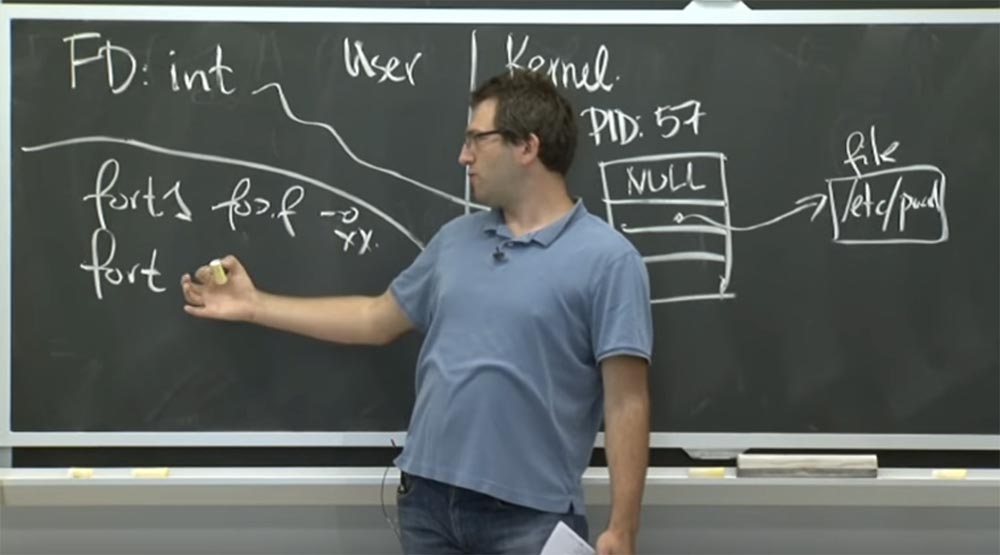 FD: int
User
Kernel.
PID: 57
NULL
file
/etc/pwd
fort1 foo.f -o
xx.
fort